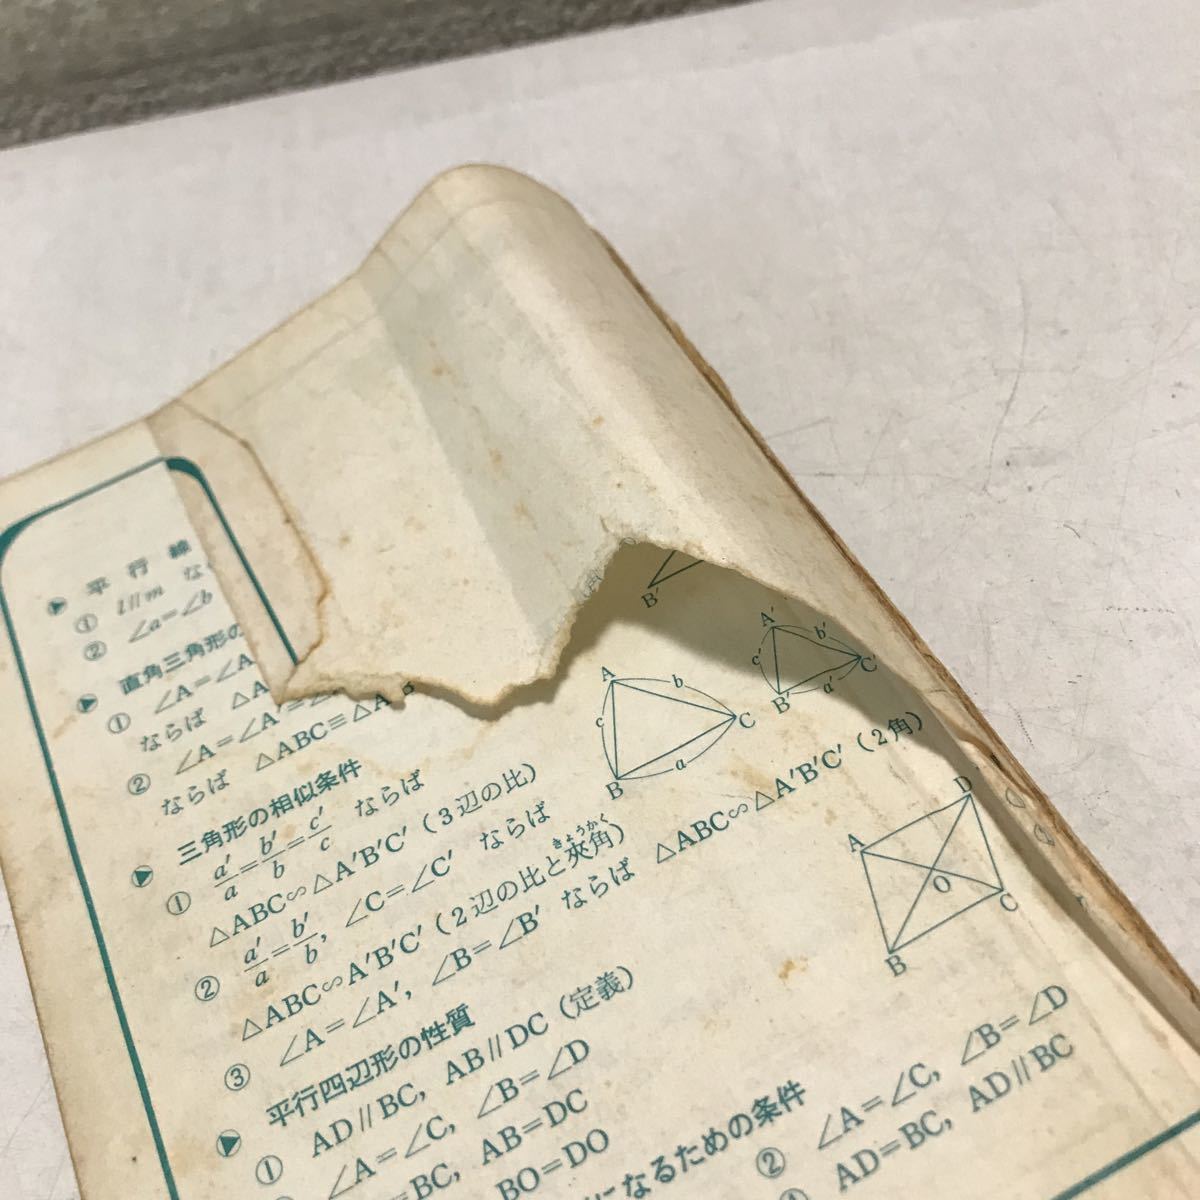 ▶ 平行線
① l∥m な
② ∠a=∠b
▶ 直角三角形の
① ∠A=∠A
ならば △A
② ∠A=∠A'=∠
ならば △ABC≡△A'B'
▶ 三角形の相似条件
① a'/a=b'/b=c'/c ならば
△ABC∽△A'B'C'（3辺の比）
② a'/a=b'/b, ∠C=∠C' ならば
△ABC∽A'B'C'（2辺の比と夾角）
きょうかく
③ ∠A=∠A', ∠B=∠B' ならば △ABC∽△A'B'C'（2角）
▶ 平行四辺形の性質
① AD∥BC, AB∥DC（定義）
∠A=∠C, ∠B=∠D
=BC, AB=DC
BO=DO
になるための条件
② ∠A=∠C, ∠B=∠D
AD=BC, AD∥BC
B'
A' b' c' C' B' a'
A b c C B a
A D O B C